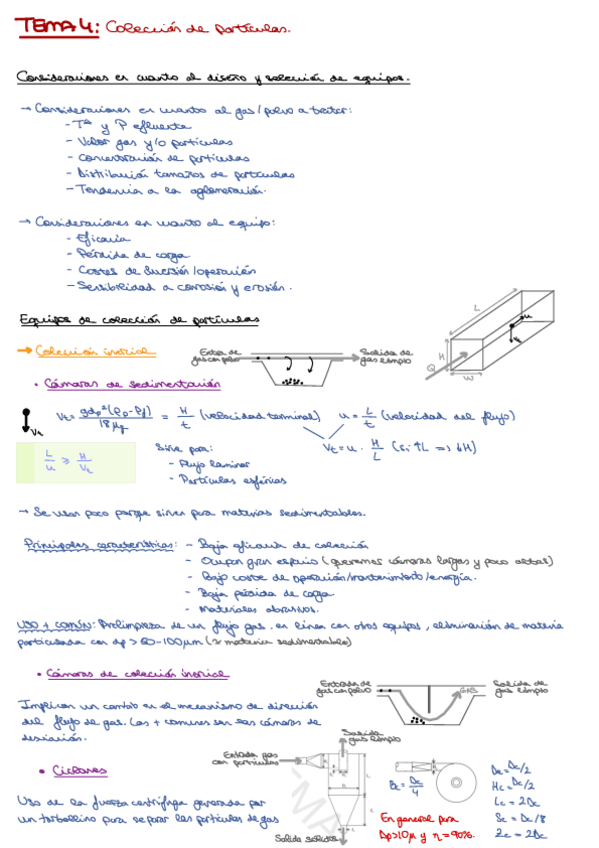 TEMA 4: Colección de partículas.
Consideraciones en cuanto al diseño y selección de equipos.
→ Consideraciones en cuanto al gas/polvo a tratar:
- Tª y P efluente
- Valor gas y/o partículas
- Concentración de partículas
- Distribución tamaños de partículas
- Tendencia a la aglomeración.
→ Consideraciones en cuanto al equipo:
- Eficacia
- Pérdida de carga
- Costes de inversión/operación
- Sensibilidad a corrosión y erosión.
Equipos de colección de partículas
→ Colección inercial
Entrada de gas con polvo
Salida de gas limpio
L
H
Q
W
u
Vt
• Cámaras de sedimentación
Vt = gdp²(ρp-ρf)/18μg = H/t (velocidad terminal) u = L/t (velocidad del flujo)
Vt
L/u ≥ H/Vt
Vt = u · H/L (si ↑L => ↓H)
Sirve para:
- Flujo laminar
- Partículas esféricas
→ Se usan poco porque sirven para materias sedimentables.
Principales características: - Baja eficacia de colección
- Ocupan gran espacio (queremos cámaras largas y poco altas)
- Bajo coste de operación/mantenimiento/energía.
- Baja pérdida de carga
- Materiales abrasivos.
USO + COMÚN: Prelimpieza de un flujo gas. en línea con otros equipos, eliminación de materia
particulada con dp > 60-100μm (≈ materia sedimentable)
• Cámaras de colección inercial
Entrada de gas con polvo
GAS
Salida de gas limpio
Implican un cambio en el mecanismo de dirección
del flujo de gas. Las + comunes son las cámaras de
desviación.
• Ciclones
Uso de la fuerza centrífuga generada por
un torbellino para separar las partículas de gas
Entrada gas con partículas
Salida gas limpio
Salida sólidos
Bc = Dc/4
De = Dc/2
Hc = Dc/2
Lc = 2Dc
Sc = Dc/8
Zc = 2Dc
En general para
Dp>10μ y η = 90%.